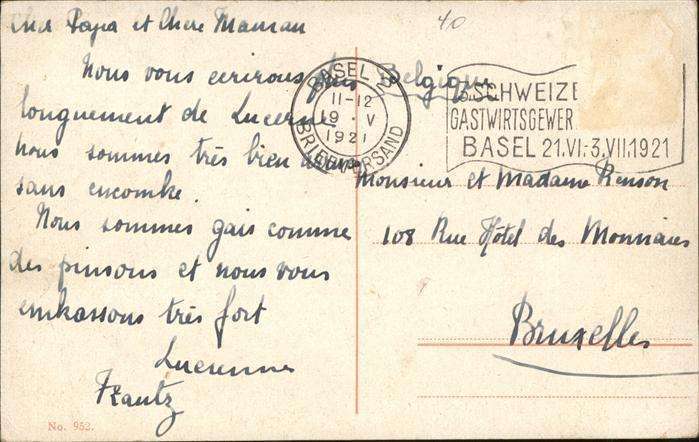 Cher Papa et Chère Maman
Nous vous écrirons plus
longuement de Lucerne
Nous sommes très bien
sans encombre.
Nous sommes gais comme
des pinsons et nous vous
embrassons très fort
Lucienne
Frantz
No. 952.
40
BASEL 2
11-12
9. V
1921
BRIEFVERSAND
Belgique
SCHWEIZE
GASTWIRTSGEWER
BASEL 21.VI.-3.VII.1921
Monsieur et Madame Renson
108 Rue Hôtel des Monnaies
Bruxelles